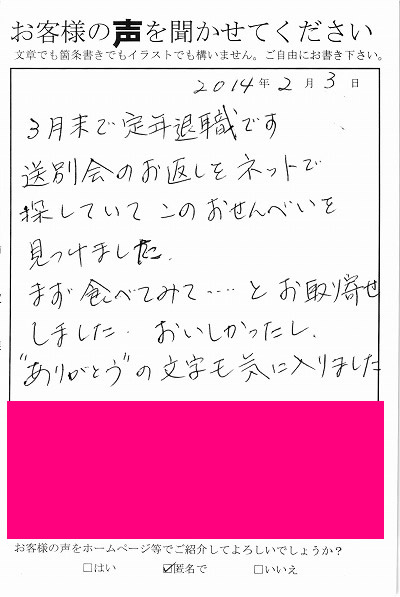 お客様の声を聞かせてください
文章でも箇条書きでもイラストでも構いません。ご自由にお書き下さい。
2014年2月3日
3月末で定年退職です
送別会のお返しをネットで
探していてこのおせんべいを
見つけました.
まず食べてみて‥‥とお取り寄せ
しました. おいしかったし、
"ありがとう"の文字も気に入りました
お客様の声をホームページ等でご紹介してよろしいでしょうか？
□はい ☑匿名で □いいえ